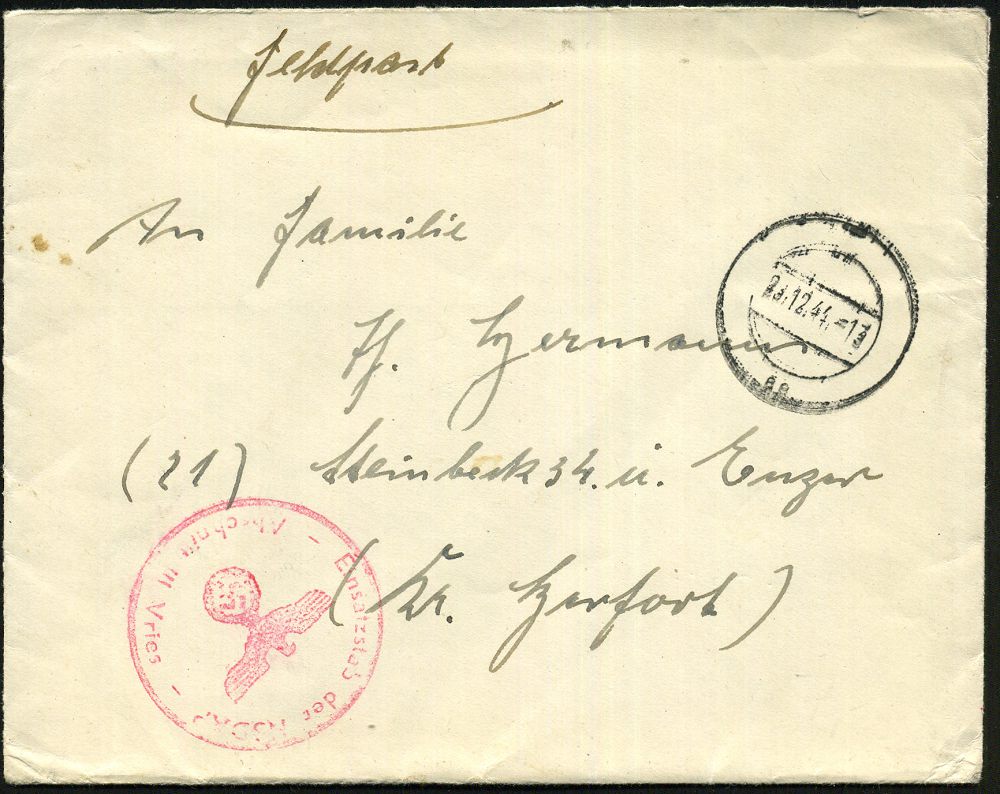 Feldpost
An Familie
H. Hermann
(21) Steinbeck 34. ü. Enger
(Kr. Herford)
23.12.44.-13
Einsatzstab der NSDAP
- Abschnitt III Vries -